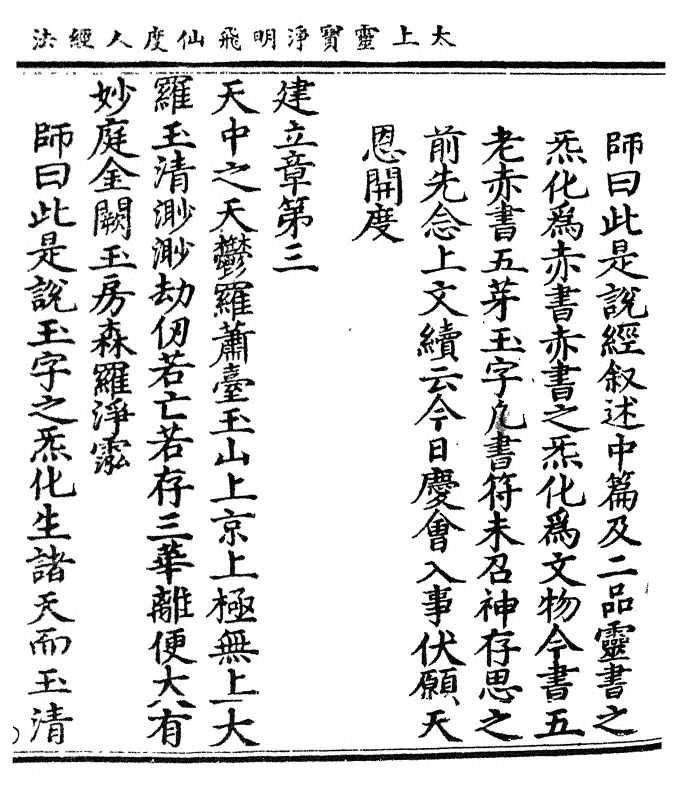 太上靈寶淨明飛仙度人經法
師曰此是說經叙述中篇及二品靈書之
炁化爲赤書赤書之炁化爲文物今書五
老赤書五芽玉字凡書符未召神存思之
前先念上文續云今日慶會入事伏願天
恩開度
建立章第三
天中之天鬱羅蕭臺玉山上京上極無上大
羅玉清渺渺劫仞若亡若存三華離便大有
妙庭金闕玉房森羅淨霐
師曰此是說玉字之炁化生諸天而玉清